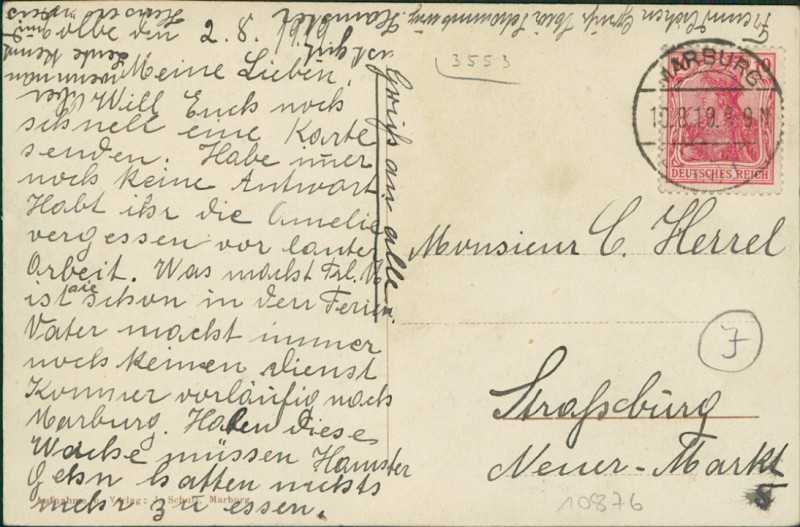 2. 8.
Meine Lieben,
Will Euch noch
schnell eine Karte
senden. Habe imer
noch keine Antwort
Habt ihr die Amelie
vergessen vor lauter
Arbeit. Was macht Frl.
ist sie schon in den Ferien.
Vater macht immer
noch keinen dienst
Kommer vorläufig nach
Marburg. Haben diese
Woche müssen Hamster
gehn hatten nichts
mehr zu essen.
Gruß an alle
3553
MARBURG
10.8.19. 8-9 N
DEUTSCHES REICH
10
Monsieur C. Herrel
J
Straßburg
Neuer-Markt
5
10876
Aufnahme u. Verlag: Schulz, Marburg